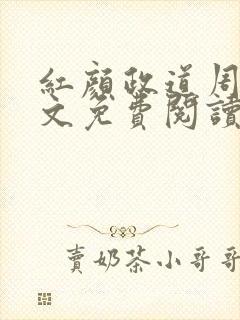 紅顏政道周
文免費閱讀
賣奶茶小哥哥